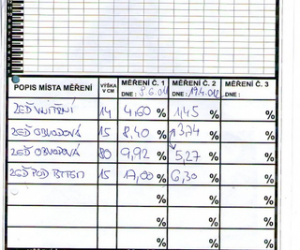 POPIS MÍSTA MĚŘENÍ VÝŠKA V CM MĚŘENÍ Č. 1 DNE: MĚŘENÍ Č. 2 DNE: MĚŘENÍ Č. 3 DNE:
ZEĎ VNITŘNÍ 14 4,60 % 1,45 %  %
ZEĎ OBVODOVÁ 15 8,40 % 3,74 %  %
ZEĎ OBVODOVÁ 80 9,92 % 5,27 %  %
ZEĎ POD 15 17,00 % 6,30 %  %
% % %
% % %
% % %